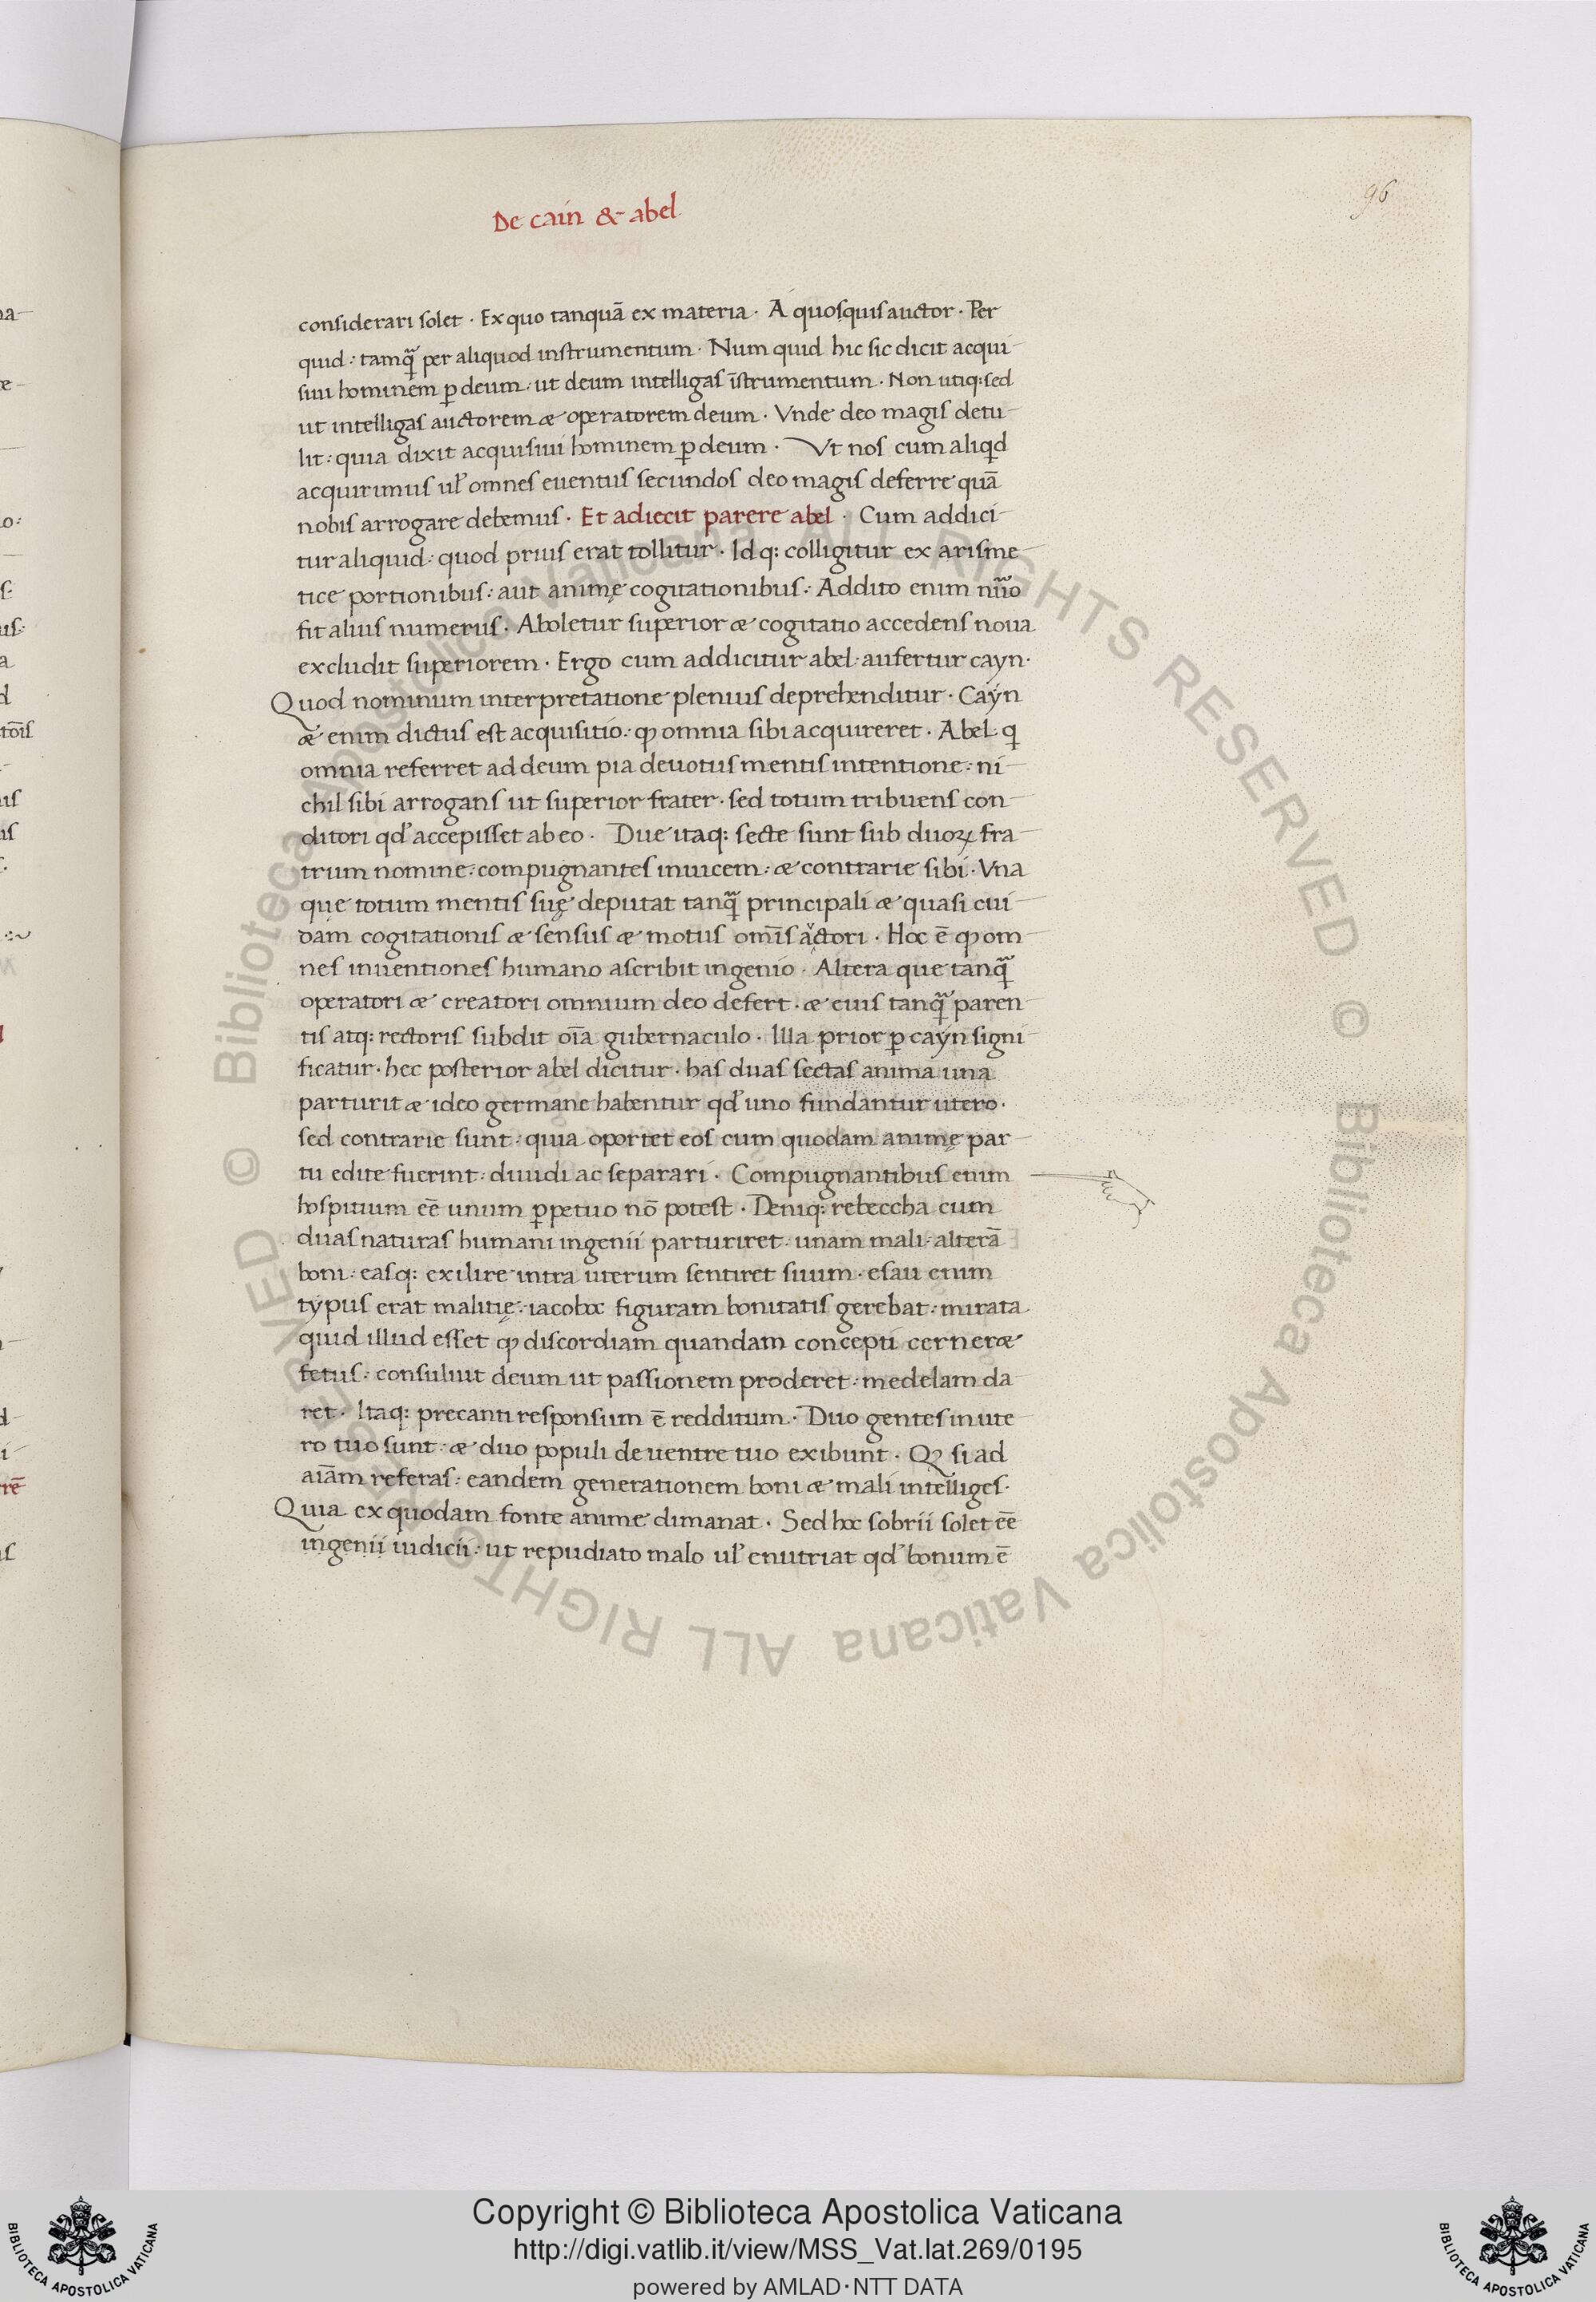 De cain & abel
96
considerari solet · Ex quo tanquā ex materia · A quo siquis auctor · Per
quid : tamꝗ̃ per aliquod instrumentum · Num quid hic sic dicit acqui-
siui hominem ꝑ deum : ut deum intelligas īstrumentum · Non utiqꝫ sed
ut intelligas auctorem & operatorem deum · Vnde deo magis detu-
lit : quia dixit acquisiui hominem ꝑ deum · Vt nos cum aliqd
acquirimus ul̓ omnes euentus secundos deo magis deferre quā
nobis arrogare debemus · Et adiecit parere abel · Cum addici-
tur aliquid : quod prius erat tollitur · Idqꝫ colligitur ex arisme-
tice portionibus : aut animę cogitationibus : Addito enim nūo
fit alius numerus · Aboletur superior & cogitatio accedens noua
excludit superiorem · Ergo cum addicitur abel : aufertur cayn ·
Quod nominum interpretatione plenius deprehenditur · Cayn
& enim dictus est acquisitio : ꝙ omnia sibi acquireret · Abel : q
omnia referret ad deum pia deuotus mentis intentione : ni-
chil sibi arrogans ut superior frater · sed totum tribuens con-
ditori qd̓ accepisset ab eo · Due itaqꝫ secte sunt sub duoꝝ fra-
trum nomine : compugnantes inuicem : & contrarie sibi · Vna
que totum mentis suę deputat tanꝗ̃ principali & quasi cui-
dam cogitationis & sensus & motus om̄is actori · Hoc ē ꝙ om-
nes inuentiones humano ascribit ingenio · Altera que tanꝗ̃
operatori & creatori omnium deo defert · & eius tanꝗ̃ paren-
tis atqꝫ rectoris subdit oīa gubernaculo · Illa prior ꝑ cayn signi-
ficatur · hec posterior abel dicitur · has duas sectas anima una
parturit & ideo germane habentur qd̓ uno fundantur utero ·
sed contrarie sunt : quia oportet eos cum quodam animę par-
tu edite fuerint : diuidi ac separari · Compugnantibus enim
hospitium eē unum ꝑpetuo nō potest · Deniqꝫ rebeccha cum
duas naturas humani ingenii parturiret : unam mali : alterā
boni : easqꝫ exilire intra uterum sentiret suum · esau enim
typus erat malitię : iacob hoc figuram bonitatis gerebat : mirata
quid illud esset ꝙ discordiam quandam concepti cerner&
fetus : consuluit deum ut passionem proderet : medelam da-
ret · Itaqꝫ precanti responsum ē redditum · Duo gentes in ute-
ro tuo sunt : & duo populi de uentre tuo exibunt · Ꝙ si ad
aīam referas : eandem generationem boni & mali intelliges ·
Quia ex quodam fonte anime dimanat · Sed hoc sobrii solet eē
ingenii iudicii : ut repudiato malo ul̓ enutriat qd̓ bonum ē
© Biblioteca Apostolica Vaticana ALL RIGHTS RESERVED © Biblioteca Apostolica Vaticana ALL RIGHTS RESERVED
Copyright © Biblioteca Apostolica Vaticana
http://digi.vatlib.it/view/MSS_Vat.lat.269/0195
powered by AMLAD·NTT DATA
BIBLIOTECA APOSTOLICA VATICANA
BIBLIOTECA APOSTOLICA VATICANA